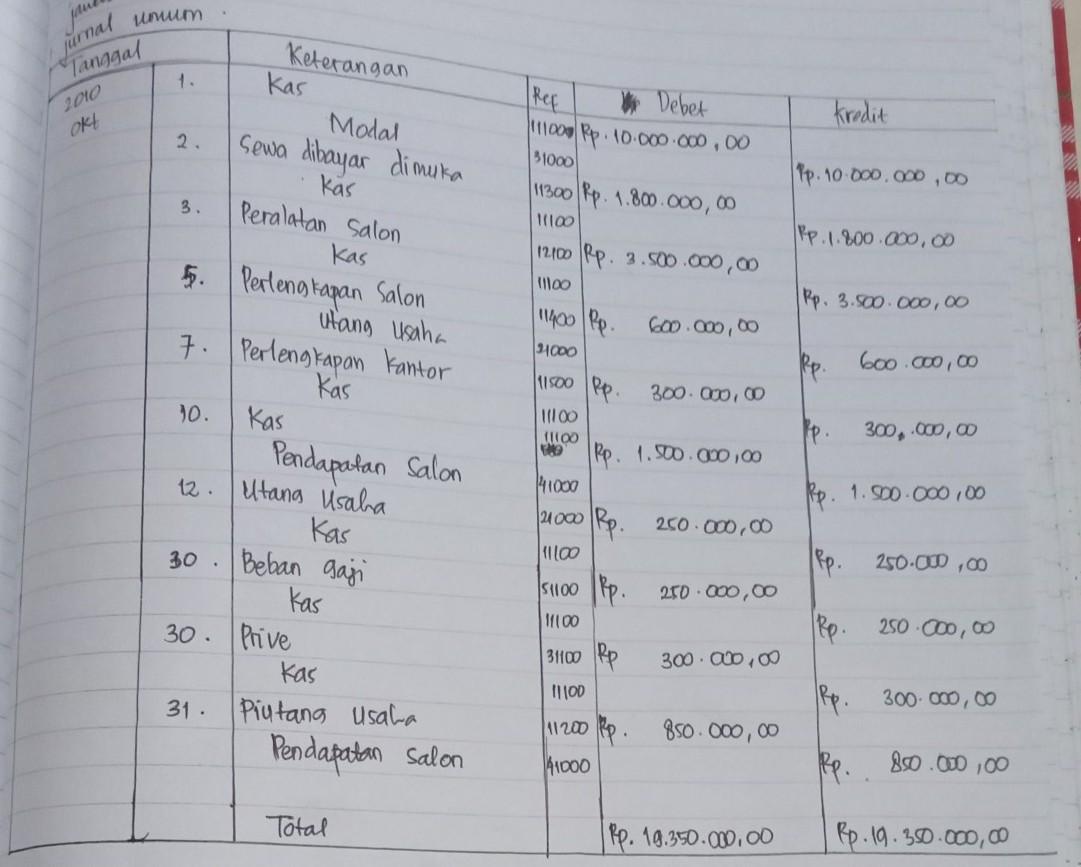 jurnal umum.
Tanggal Keterangan Ref Debet Kredit
2010 Okt 1. Kas 11100 Rp. 10.000.000,00
Modal 31000 Rp. 10.000.000,00
2. Sewa dibayar dimuka 11300 Rp. 1.800.000,00
Kas 11100 Rp. 1.800.000,00
3. Peralatan Salon 12100 Rp. 3.500.000,00
Kas 11100 Rp. 3.500.000,00
5. Perlengkapan Salon 11400 Rp. 600.000,00
Utang Usaha 21000 Rp. 600.000,00
7. Perlengkapan Kantor 11500 Rp. 300.000,00
Kas 11100 Rp. 300.000,00
10. Kas 11100 Rp. 1.500.000,00
Pendapatan Salon 41000 Rp. 1.500.000,00
12. Utang Usaha 21000 Rp. 250.000,00
Kas 11100 Rp. 250.000,00
30. Beban gaji 51100 Rp. 250.000,00
Kas 11100 Rp. 250.000,00
30. Prive 31100 Rp 300.000,00
Kas 11100 Rp. 300.000,00
31. Piutang Usaha 11200 Rp. 850.000,00
Pendapatan Salon 41000 Rp. 850.000,00
Total Rp. 19.350.000,00 Rp. 19.350.000,00